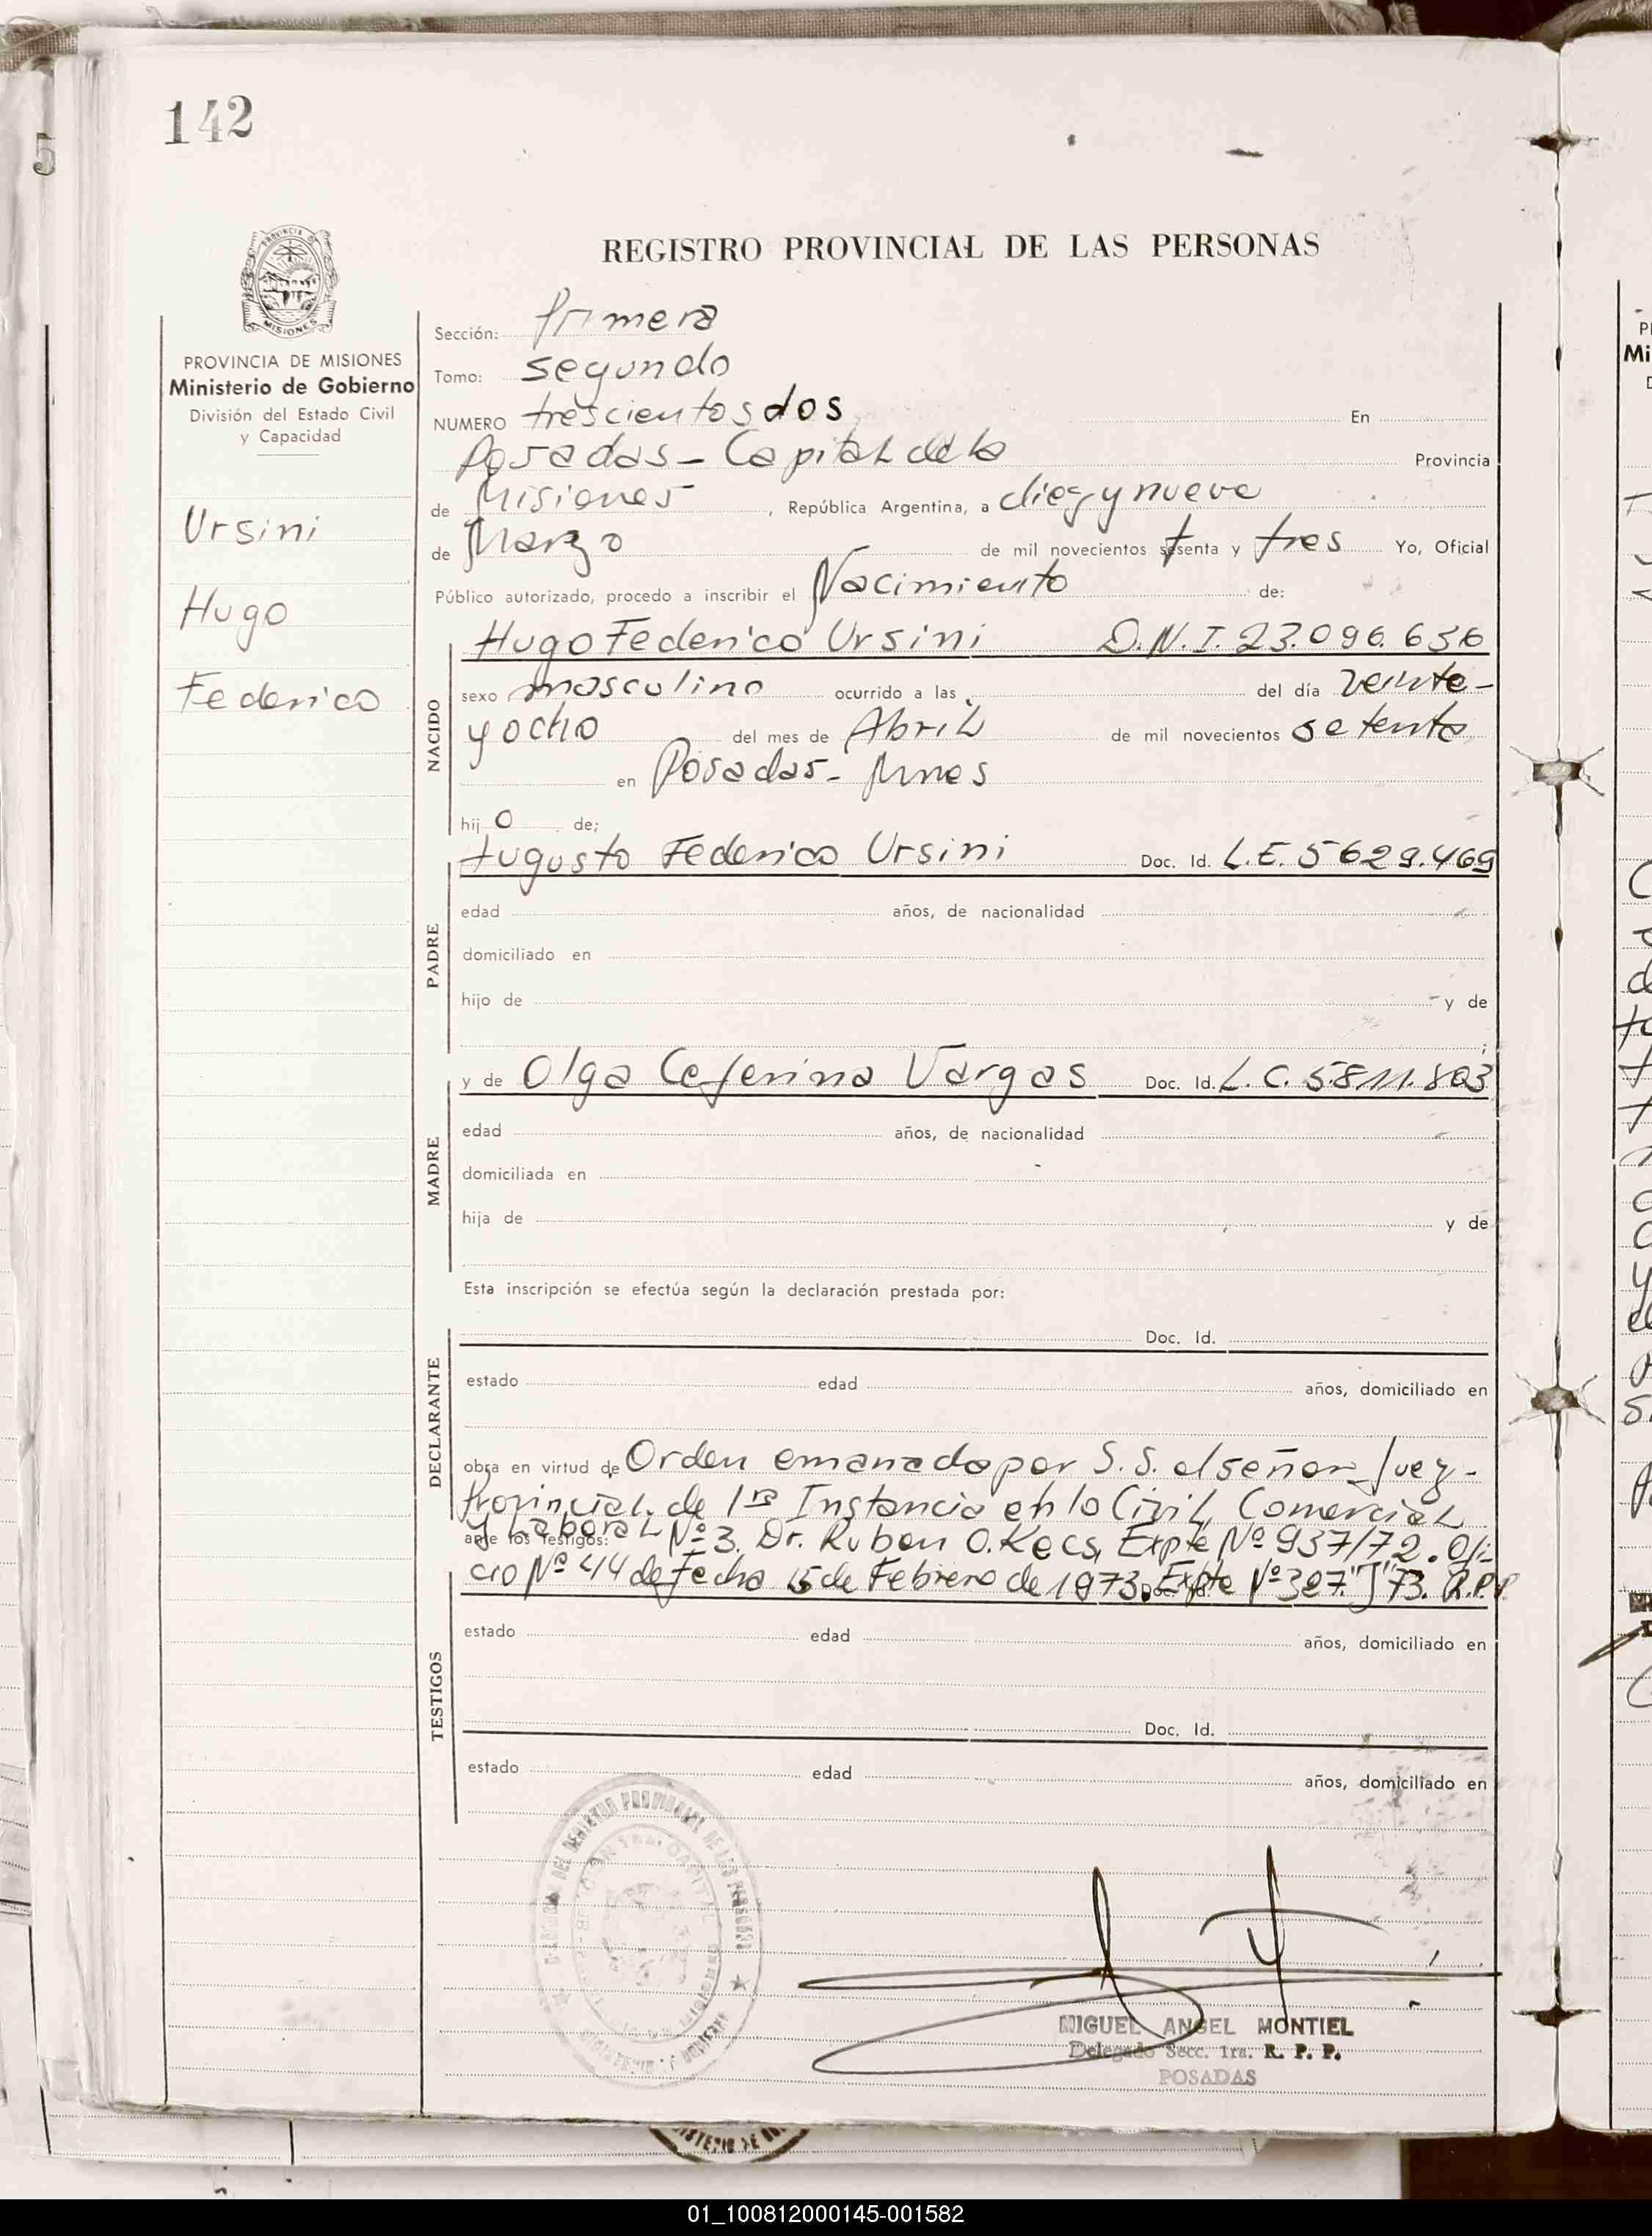 142
5
REGISTRO PROVINCIAL DE LAS PERSONAS
PROVINCIA DE MISIONES
Ministerio de Gobierno
División del Estado Civil
y Capacidad
Ursini
Hugo
Federico
Sección: Primera
Tomo: segundo
NUMERO trescientos dos En
Posadas - Capital de la Provincia
de Misiones, República Argentina, a diez y nueve
de Marzo de mil novecientos setenta y tres Yo, Oficial
Público autorizado, procedo a inscribir el Nacimiento de:
NACIDO
Hugo Federico Ursini D.N.I. 23.096.656
sexo masculino ocurrido a las del día veinte-
y ocho del mes de Abril de mil novecientos setenta
en Posadas - Mnes
hij o de;
PADRE
Augusto Federico Ursini Doc. Id. L.E. 5629.469
edad años, de nacionalidad
domiciliado en
hijo de y de
MADRE
y de Olga Ceferina Vargas Doc. Id. L.C. 5.811.803
edad años, de nacionalidad
domiciliada en
hija de y de
Esta inscripción se efectúa según la declaración prestada por:
DECLARANTE
Doc. Id.
estado edad años, domiciliado en
obra en virtud de Orden emanada por S.S. el señor Juez-
Provincial de 1ra Instancia en lo Civil, Comercial
ante los testigos: y Laboral Nº 3. Dr. Ruben O. Kecs, Expte Nº 937/72. Ofi-
cio Nº 44 de fecha 15 de Febrero de 1973. Expte Nº 327."J"73. R.P.P.
TESTIGOS
estado edad años, domiciliado en
Doc. Id.
estado edad años, domiciliado en
MIGUEL ANGEL MONTIEL
Delegado Secc. 1ra. R. P. P.
POSADAS
01_100812000145-001582